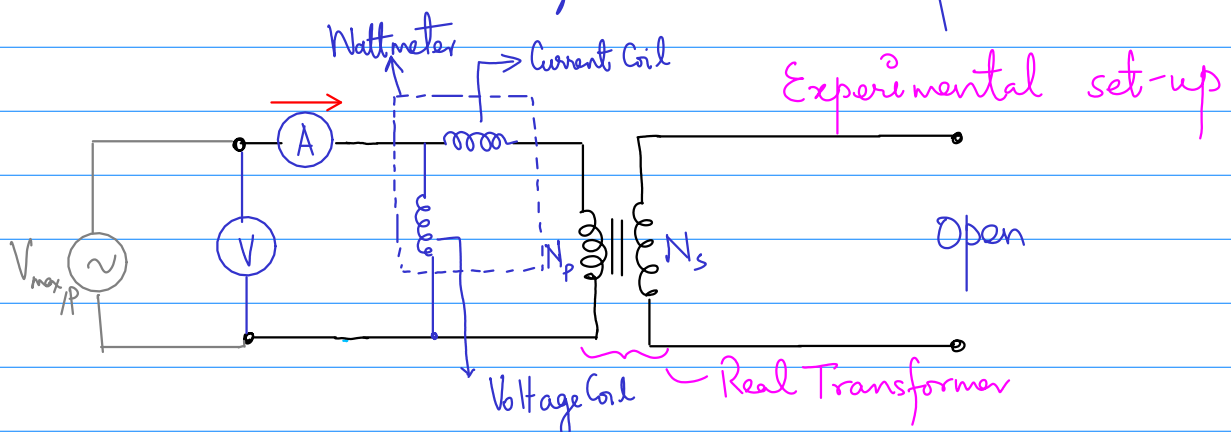 Wattmeter
Current Coil
Experimental set-up
A
V
V max,P
N P
N S
Open
Voltage Coil
Real Transformer